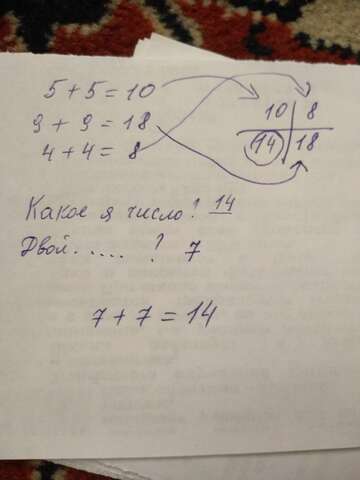 5 + 5 = 10
9 + 9 = 18
4 + 4 = 8
10 8
14 18
Какое я число? 14
Двой..... ? 7
7 + 7 = 14